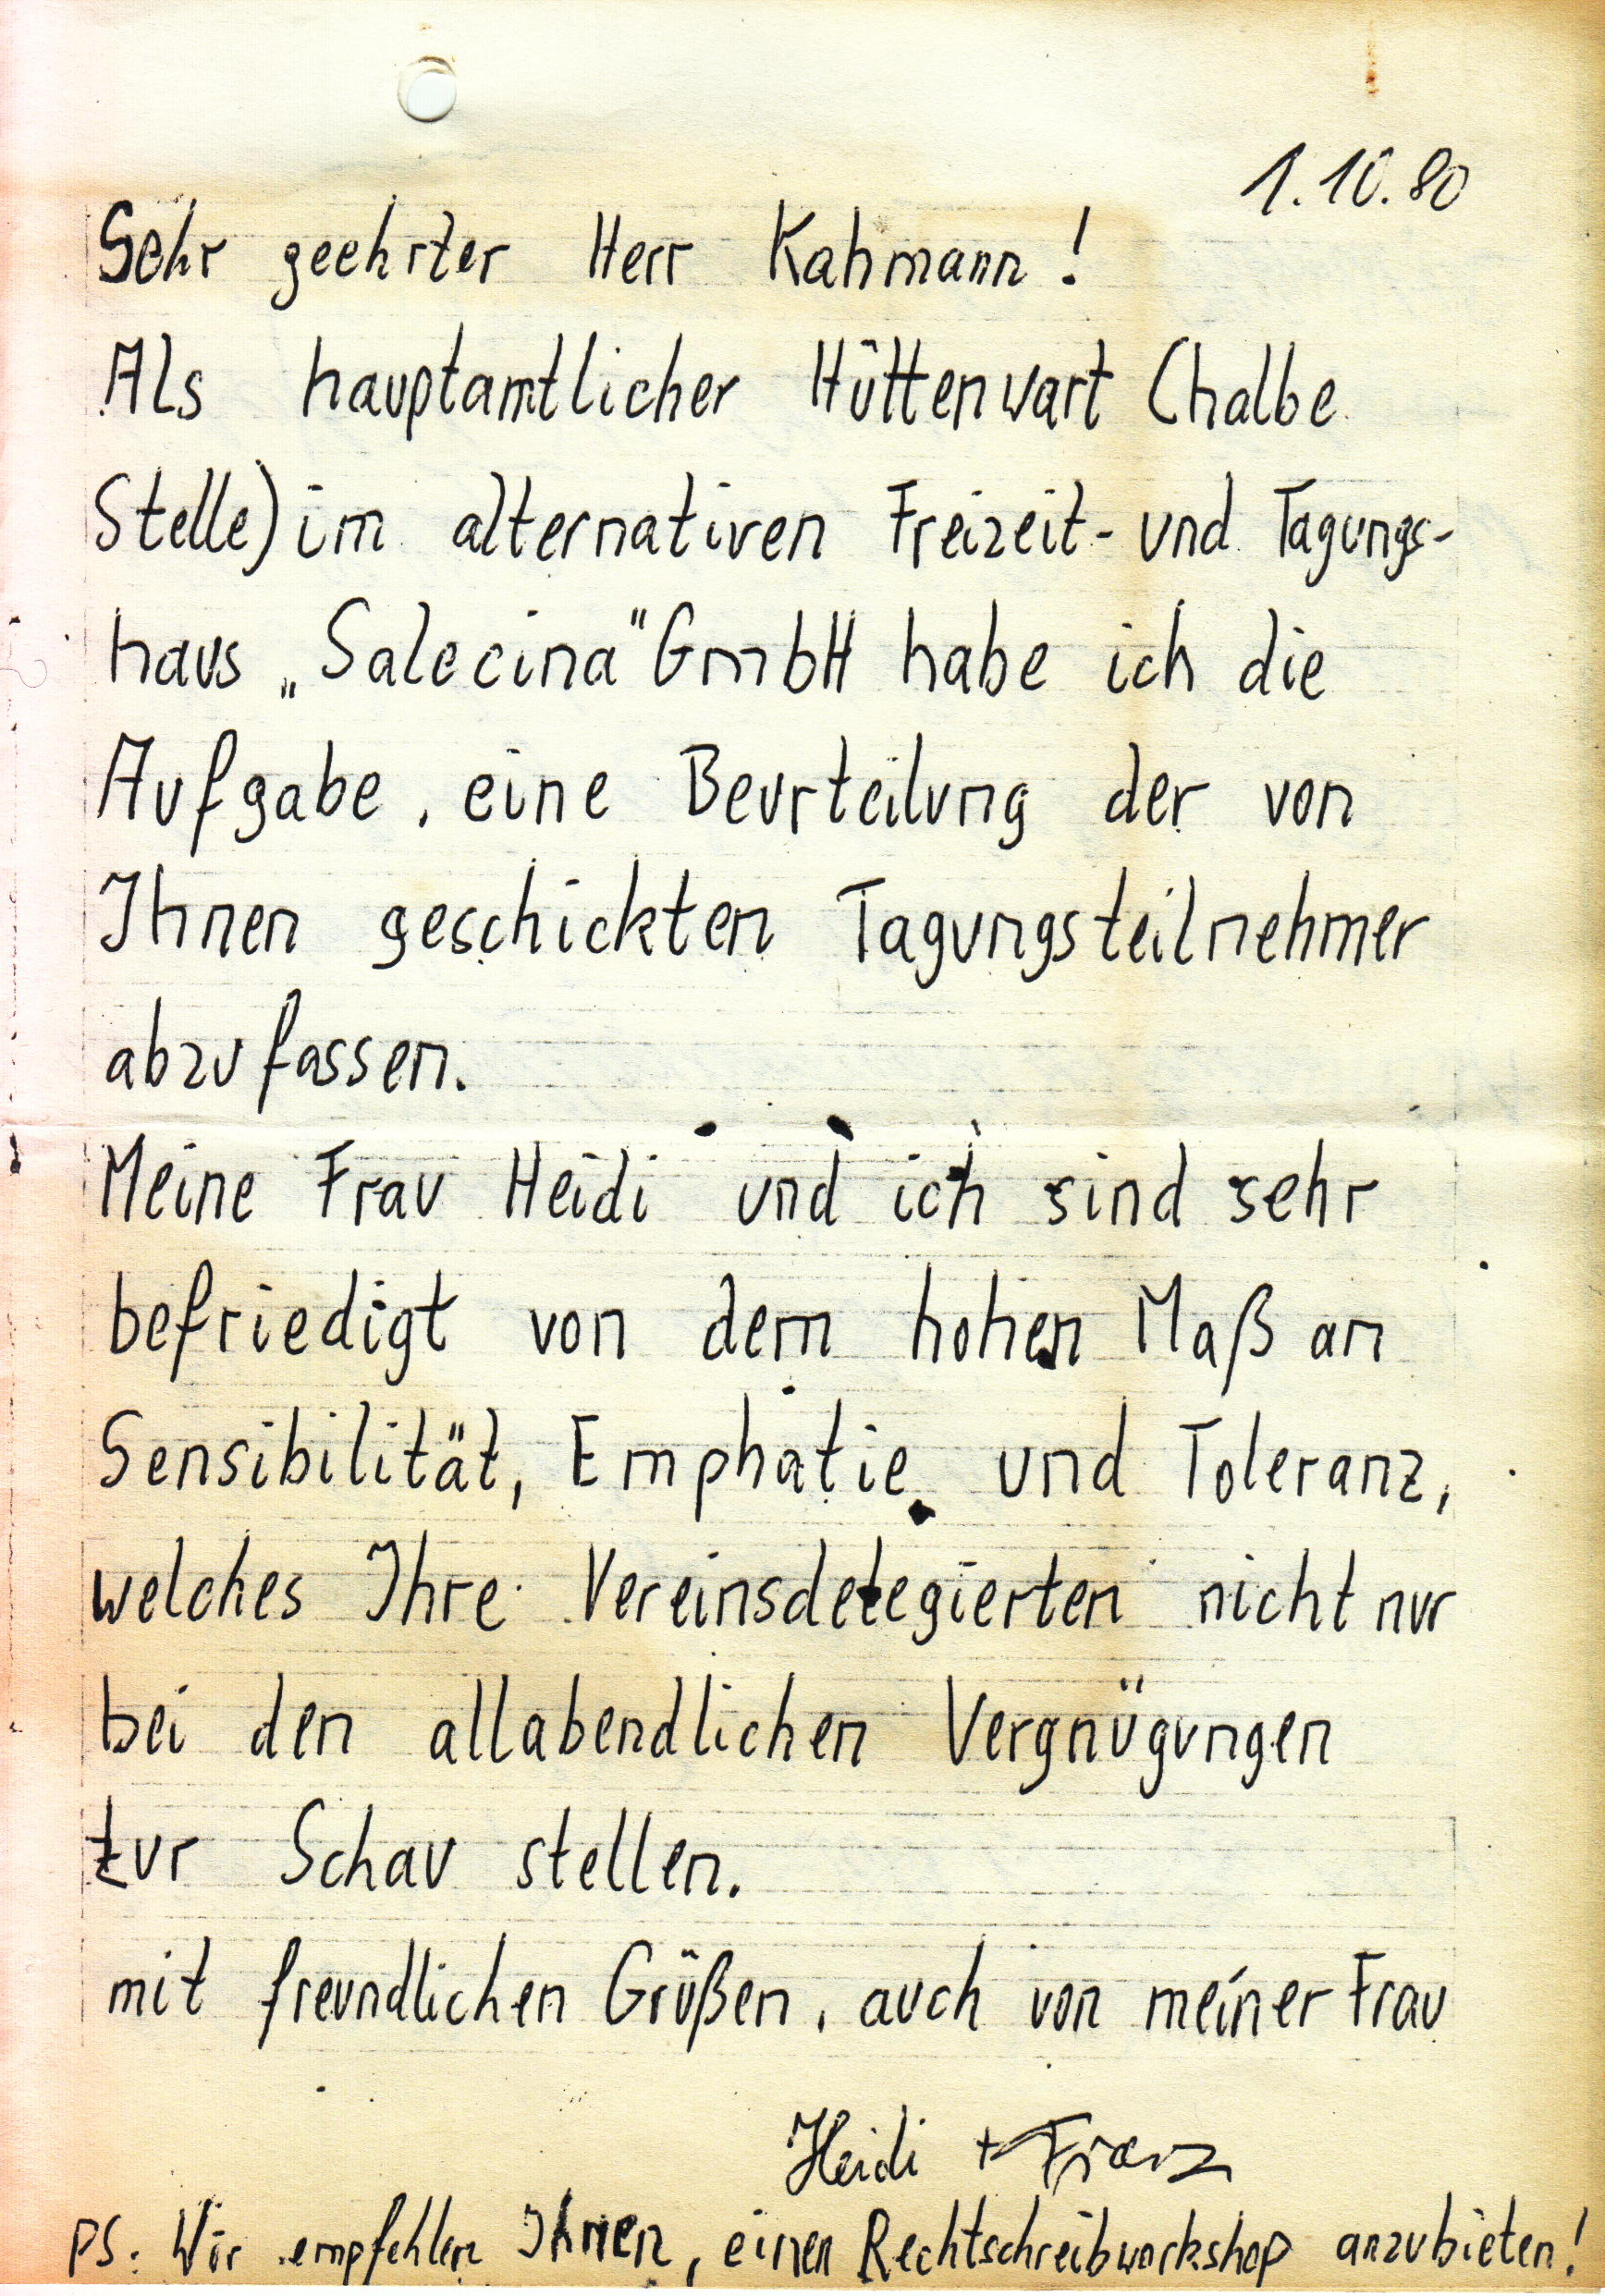 1.10.80
Sehr geehrter Herr Kahmann!
Als hauptamtlicher Hüttenwart (halbe
Stelle) im alternativen Freizeit- und Tagungs-
haus „Salecina“ GmbH habe ich die
Aufgabe, eine Beurteilung der von
Ihnen geschickten Tagungsteilnehmer
abzufassen.
Meine Frau Heidi und ich sind sehr
befriedigt von dem hohen Maß an
Sensibilität, Emphatie und Toleranz,
welches Ihre Vereinsdelegierten nicht nur
bei den allabendlichen Vergnügungen
zur Schau stellen.
mit freundlichen Grüßen, auch von meiner Frau
Heidi + Franz
PS: Wir empfehlen Ihnen, einen Rechtschreibworkshop anzubieten!